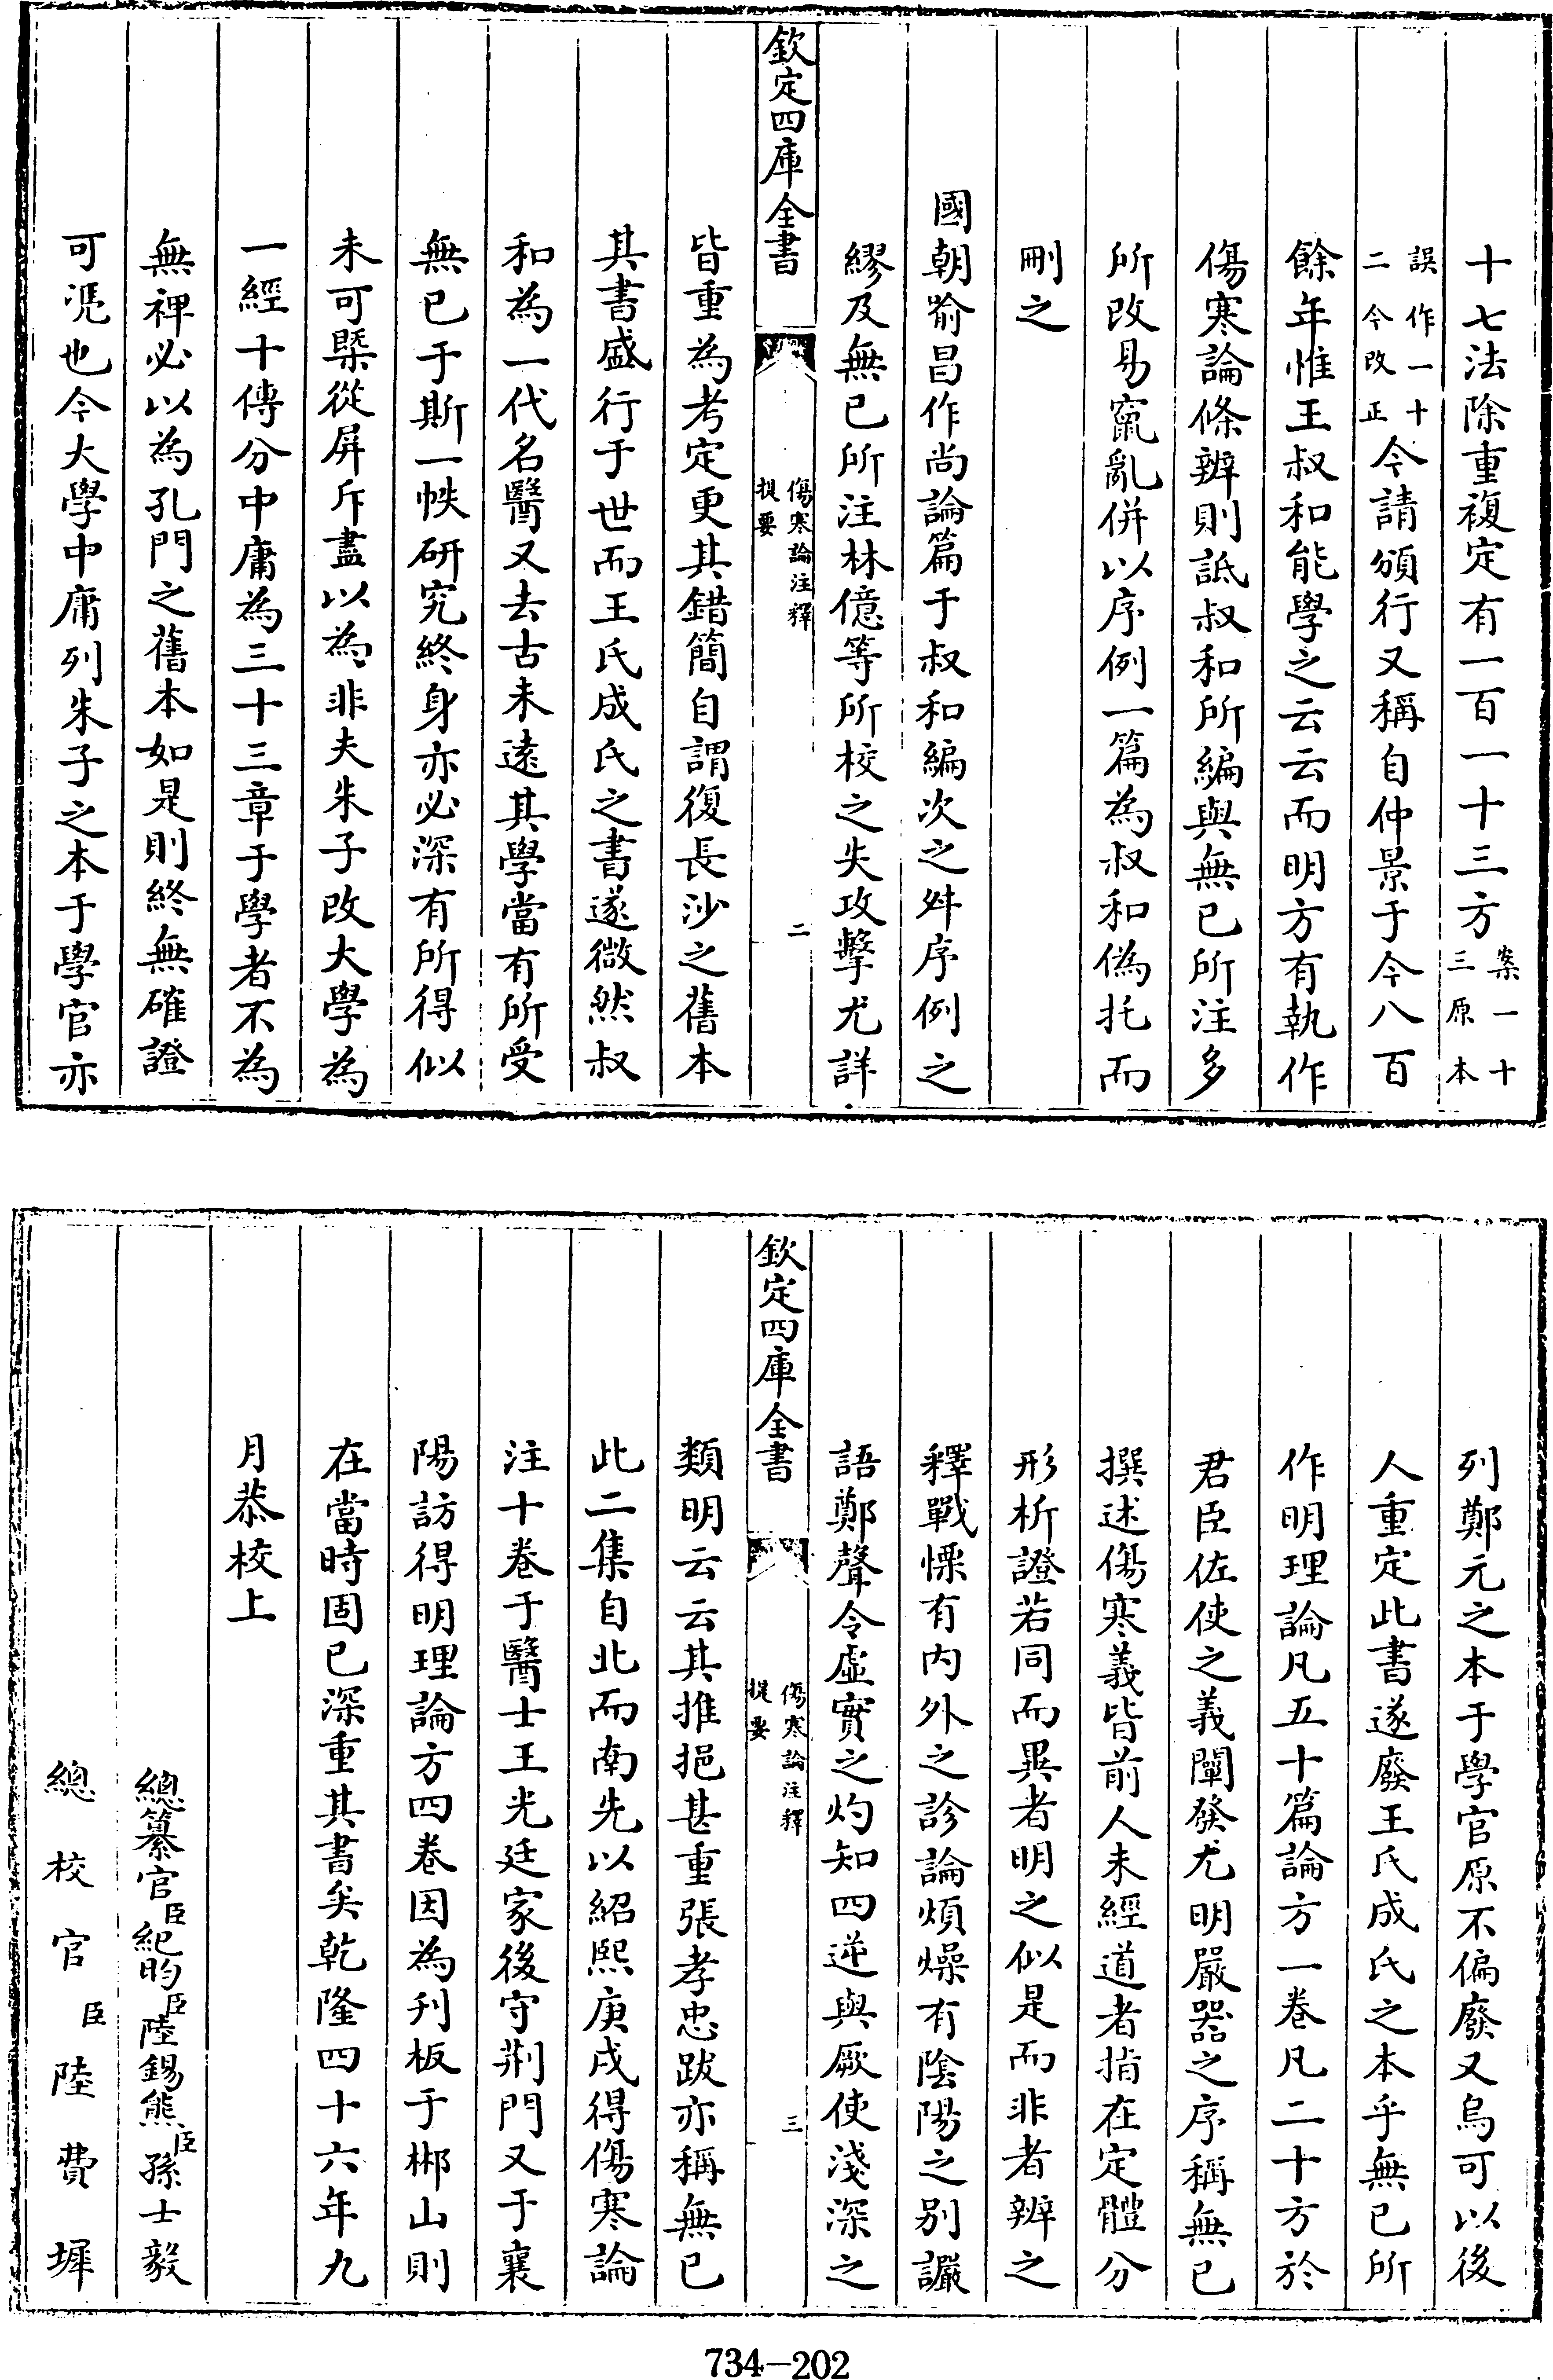 十七法除重複定有一百一十三方案一十三原本
誤作一十二今改正今請頒行又稱自仲景于今八百
餘年惟王叔和能學之云云而明方有執作
傷寒論條辨則詆叔和所編與無已所注多
所改易竄亂併以序例一篇為叔和偽托而
刪之
國朝喻昌作尚論篇于叔和編次之舛序例之
繆及無已所注林億等所校之失攻擊尤詳
欽定四庫全書
傷寒論注釋
提要
二
皆重為考定更其錯簡自謂復長沙之舊本
其書盛行于世而王氏成氏之書遂微然叔
和為一代名醫又去古未遠其學當有所受
無已于斯一帙研究終身亦必深有所得似
未可槩從屏斥盡以為非夫朱子改大學為
一經十傳分中庸為三十三章于學者不為
無裨必以為孔門之舊本如是則終無確證
可憑也今大學中庸列朱子之本于學官亦
列鄭元之本于學官原不偏廢又烏可以後
人重定此書遂廢王氏成氏之本乎無已所
作明理論凡五十篇論方一卷凡二十方於
君臣佐使之義闡發尤明嚴器之序稱無已
撰述傷寒義皆前人未經道者指在定體分
形析證若同而異者明之似是而非者辨之
釋戰慄有內外之診論煩燥有陰陽之別讝
語鄭聲令虛實之灼知四逆與厥使淺深之
欽定四庫全書
傷寒論注釋
提要
三
類明云云其推挹甚重張孝忠跋亦稱無已
此二集自北而南先以紹熙庚戌得傷寒論
注十卷于醫士王光廷家後守荆門又于襄
陽訪得明理論方四卷因為刋板于郴山則
在當時固已深重其書矣乾隆四十六年九
月恭校上
總纂官臣紀昀臣陸錫熊臣孫士毅
總校官臣陸費墀
734-202